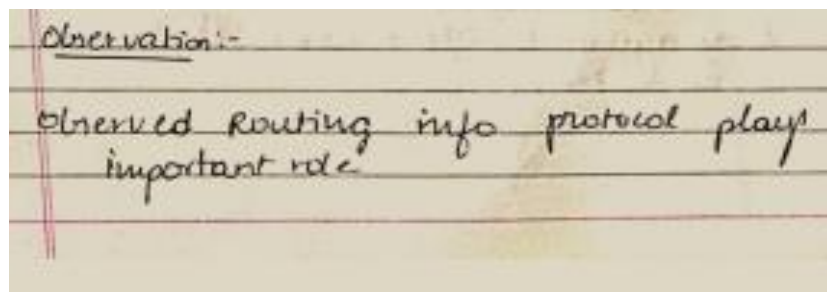 Observation:-
Observed Routing info protocol plays
important role